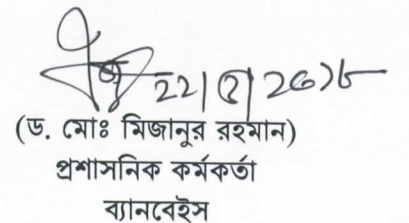 ২২|৫|২০১৮
(ড. মোঃ মিজানুর রহমান)
প্রশাসনিক কর্মকর্তা
ব্যানবেইস